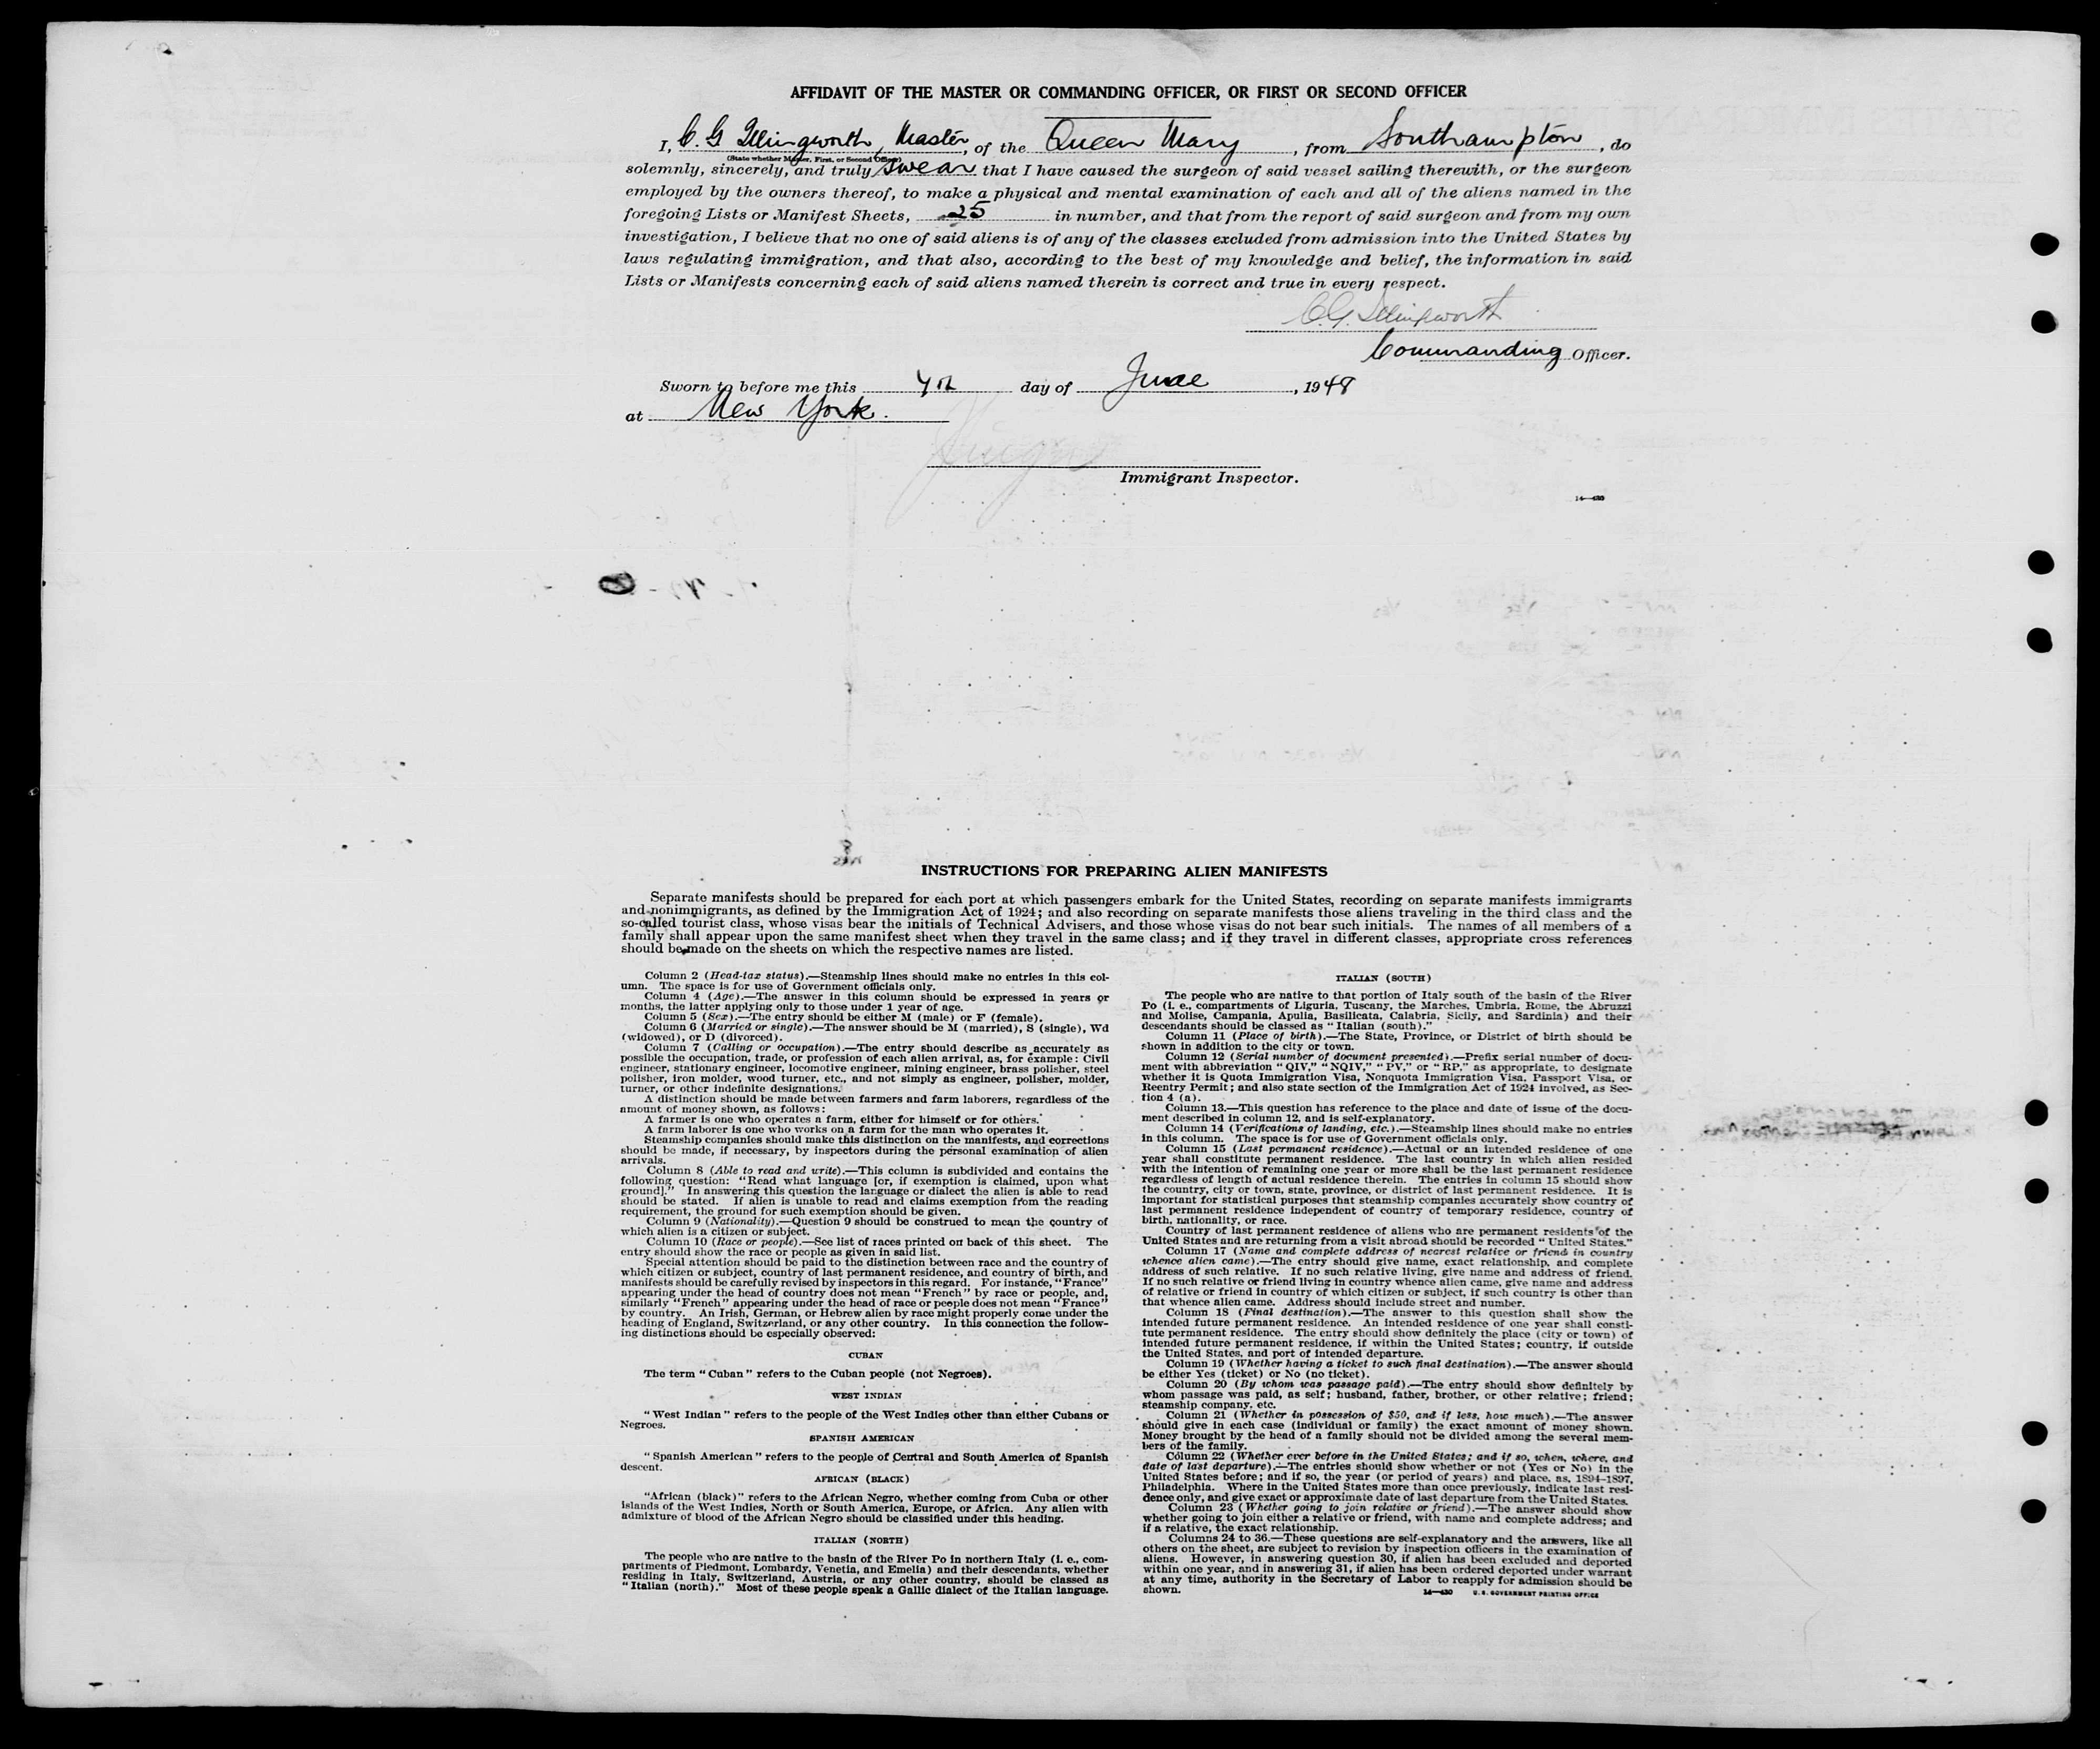 AFFIDAVIT OF THE MASTER OR COMMANDING OFFICER, OR FIRST OR SECOND OFFICER
I, C. G Illingworth, Master, of the Queen Mary, from Southampton, do
(State whether Master, First, or Second Officer)
solemnly, sincerely, and truly swear that I have caused the surgeon of said vessel sailing therewith, or the surgeon
employed by the owners thereof, to make a physical and mental examination of each and all of the aliens named in the
foregoing Lists or Manifest Sheets, 25 in number, and that from the report of said surgeon and from my own
investigation, I believe that no one of said aliens is of any of the classes excluded from admission into the United States by
laws regulating immigration, and that also, according to the best of my knowledge and belief, the information in said
Lists or Manifests concerning each of said aliens named therein is correct and true in every respect.
C.G. Illingworth
Commanding Officer.
Sworn to before me this day of June, 1948
at New York.
Immigrant Inspector.
14—430
INSTRUCTIONS FOR PREPARING ALIEN MANIFESTS
Separate manifests should be prepared for each port at which passengers embark for the United States, recording on separate manifests immigrants
and nonimmigrants, as defined by the Immigration Act of 1924; and also recording on separate manifests those aliens traveling in the third class and the
so-called tourist class, whose visas bear the initials of Technical Advisers, and those whose visas do not bear such initials. The names of all members of a
family shall appear upon the same manifest sheet when they travel in the same class; and if they travel in different classes, appropriate cross references
should be made on the sheets on which the respective names are listed.
Column 2 (Head-tax status).—Steamship lines should make no entries in this col-
umn. The space is for use of Government officials only.
Column 4 (Age).—The answer in this column should be expressed in years or
months, the latter applying only to those under 1 year of age.
Column 5 (Sex).—The entry should be either M (male) or F (female).
Column 6 (Married or single).—The answer should be M (married), S (single), Wd
(widowed), or D (divorced).
Column 7 (Calling or occupation).—The entry should describe as accurately as
possible the occupation, trade, or profession of each alien arrival, as, for example: Civil
engineer, stationary engineer, locomotive engineer, mining engineer, brass polisher, steel
polisher, iron molder, wood turner, etc., and not simply as engineer, polisher, molder,
turner, or other indefinite designations.
A distinction should be made between farmers and farm laborers, regardless of the
amount of money shown, as follows:
A farmer is one who operates a farm, either for himself or for others.
A farm laborer is one who works on a farm for the man who operates it.
Steamship companies should make this distinction on the manifests, and corrections
should be made, if necessary, by inspectors during the personal examination of alien
arrivals.
Column 8 (Able to read and write).—This column is subdivided and contains the
following question: "Read what language [or, if exemption is claimed, upon what
ground]." In answering this question the language or dialect the alien is able to read
should be stated. If alien is unable to read and claims exemption from the reading
requirement, the ground for such exemption should be given.
Column 9 (Nationality).—Question 9 should be construed to mean the country of
which alien is a citizen or subject.
Column 10 (Race or people).—See list of races printed on back of this sheet. The
entry should show the race or people as given in said list.
Special attention should be paid to the distinction between race and the country of
which citizen or subject, country of last permanent residence, and country of birth, and
manifests should be carefully revised by inspectors in this regard. For instance, "France"
appearing under the head of country does not mean "French" by race or people, and,
similarly "French" appearing under the head of race or people does not mean "France"
by country. An Irish, German, or Hebrew alien by race might properly come under the
heading of England, Switzerland, or any other country. In this connection the follow-
ing distinctions should be especially observed:
CUBAN
The term "Cuban" refers to the Cuban people (not Negroes).
WEST INDIAN
"West Indian" refers to the people of the West Indies other than either Cubans or
Negroes.
SPANISH AMERICAN
"Spanish American" refers to the people of Central and South America of Spanish
descent.
AFRICAN (BLACK)
"African (black)" refers to the African Negro, whether coming from Cuba or other
islands of the West Indies, North or South America, Europe, or Africa. Any alien with
admixture of blood of the African Negro should be classified under this heading.
ITALIAN (NORTH)
The people who are native to the basin of the River Po in northern Italy (i. e., com-
partments of Piedmont, Lombardy, Venetia, and Emelia) and their descendants, whether
residing in Italy, Switzerland, Austria, or any other country, should be classed as
"Italian (north)." Most of these people speak a Gallic dialect of the Italian language.
ITALIAN (SOUTH)
The people who are native to that portion of Italy south of the basin of the River
Po (i. e., compartments of Liguria, Tuscany, the Marches, Umbria, Rome, the Abruzzi
and Molise, Campania, Apulia, Basilicata, Calabria, Sicily, and Sardinia) and their
descendants should be classed as "Italian (south)."
Column 11 (Place of birth).—The State, Province, or District of birth should be
shown in addition to the city or town.
Column 12 (Serial number of document presented).—Prefix serial number of docu-
ment with abbreviation "QIV," "NQIV," "PV," or "RP," as appropriate, to designate
whether it is Quota Immigration Visa, Nonquota Immigration Visa, Passport Visa, or
Reentry Permit; and also state section of the Immigration Act of 1924 involved, as Sec-
tion 4 (a).
Column 13.—This question has reference to the place and date of issue of the docu-
ment described in column 12, and is self-explanatory.
Column 14 (Verifications of landing, etc.).—Steamship lines should make no entries
in this column. The space is for use of Government officials only.
Column 15 (Last permanent residence).—Actual or an intended residence of one
year shall constitute permanent residence. The last country in which alien resided
with the intention of remaining one year or more shall be the last permanent residence
regardless of length of actual residence therein. The entries in column 15 should show
the country, city or town, state, province, or district of last permanent residence. It is
important for statistical purposes that steamship companies accurately show country of
last permanent residence independent of country of temporary residence, country of
birth, nationality, or race.
Country of last permanent residence of aliens who are permanent residents of the
United States and are returning from a visit abroad should be recorded "United States."
Column 17 (Name and complete address of nearest relative or friend in country
whence alien came).—The entry should give name, exact relationship, and complete
address of such relative. If no such relative living, give name and address of friend.
If no such relative or friend living in country whence alien came, give name and address
of relative or friend in country of which citizen or subject, if such country is other than
that whence alien came. Address should include street and number.
Column 18 (Final destination).—The answer to this question shall show the
intended future permanent residence. An intended residence of one year shall consti-
tute permanent residence. The entry should show definitely the place (city or town) of
intended future permanent residence, if within the United States; country, if outside
the United States, and port of intended departure.
Column 19 (Whether having a ticket to such final destination).—The answer should
be either Yes (ticket) or No (no ticket).
Column 20 (By whom was passage paid).—The entry should show definitely by
whom passage was paid, as self; husband, father, brother, or other relative; friend;
steamship company, etc.
Column 21 (Whether in possession of $50, and if less, how much).—The answer
should give in each case (individual or family) the exact amount of money shown.
Money brought by the head of a family should not be divided among the several mem-
bers of the family.
Column 22 (Whether ever before in the United States; and if so, when, where, and
date of last departure).—The entries should show whether or not (Yes or No) in the
United States before; and if so, the year (or period of years) and place, as, 1894–1897,
Philadelphia. Where in the United States more than once previously, indicate last resi-
dence only, and give exact or approximate date of last departure from the United States.
Column 23 (Whether going to join relative or friend).—The answer should show
whether going to join either a relative or friend, with name and complete address; and
if a relative, the exact relationship.
Columns 24 to 36.—These questions are self-explanatory and the answers, like all
others on the sheet, are subject to revision by inspection officers in the examination of
aliens. However, in answering question 30, if alien has been excluded and deported
within one year, and in answering 31, if alien has been ordered deported under warrant
at any time, authority in the Secretary of Labor to reapply for admission should be
shown.
14—430 U. S. GOVERNMENT PRINTING OFFICE